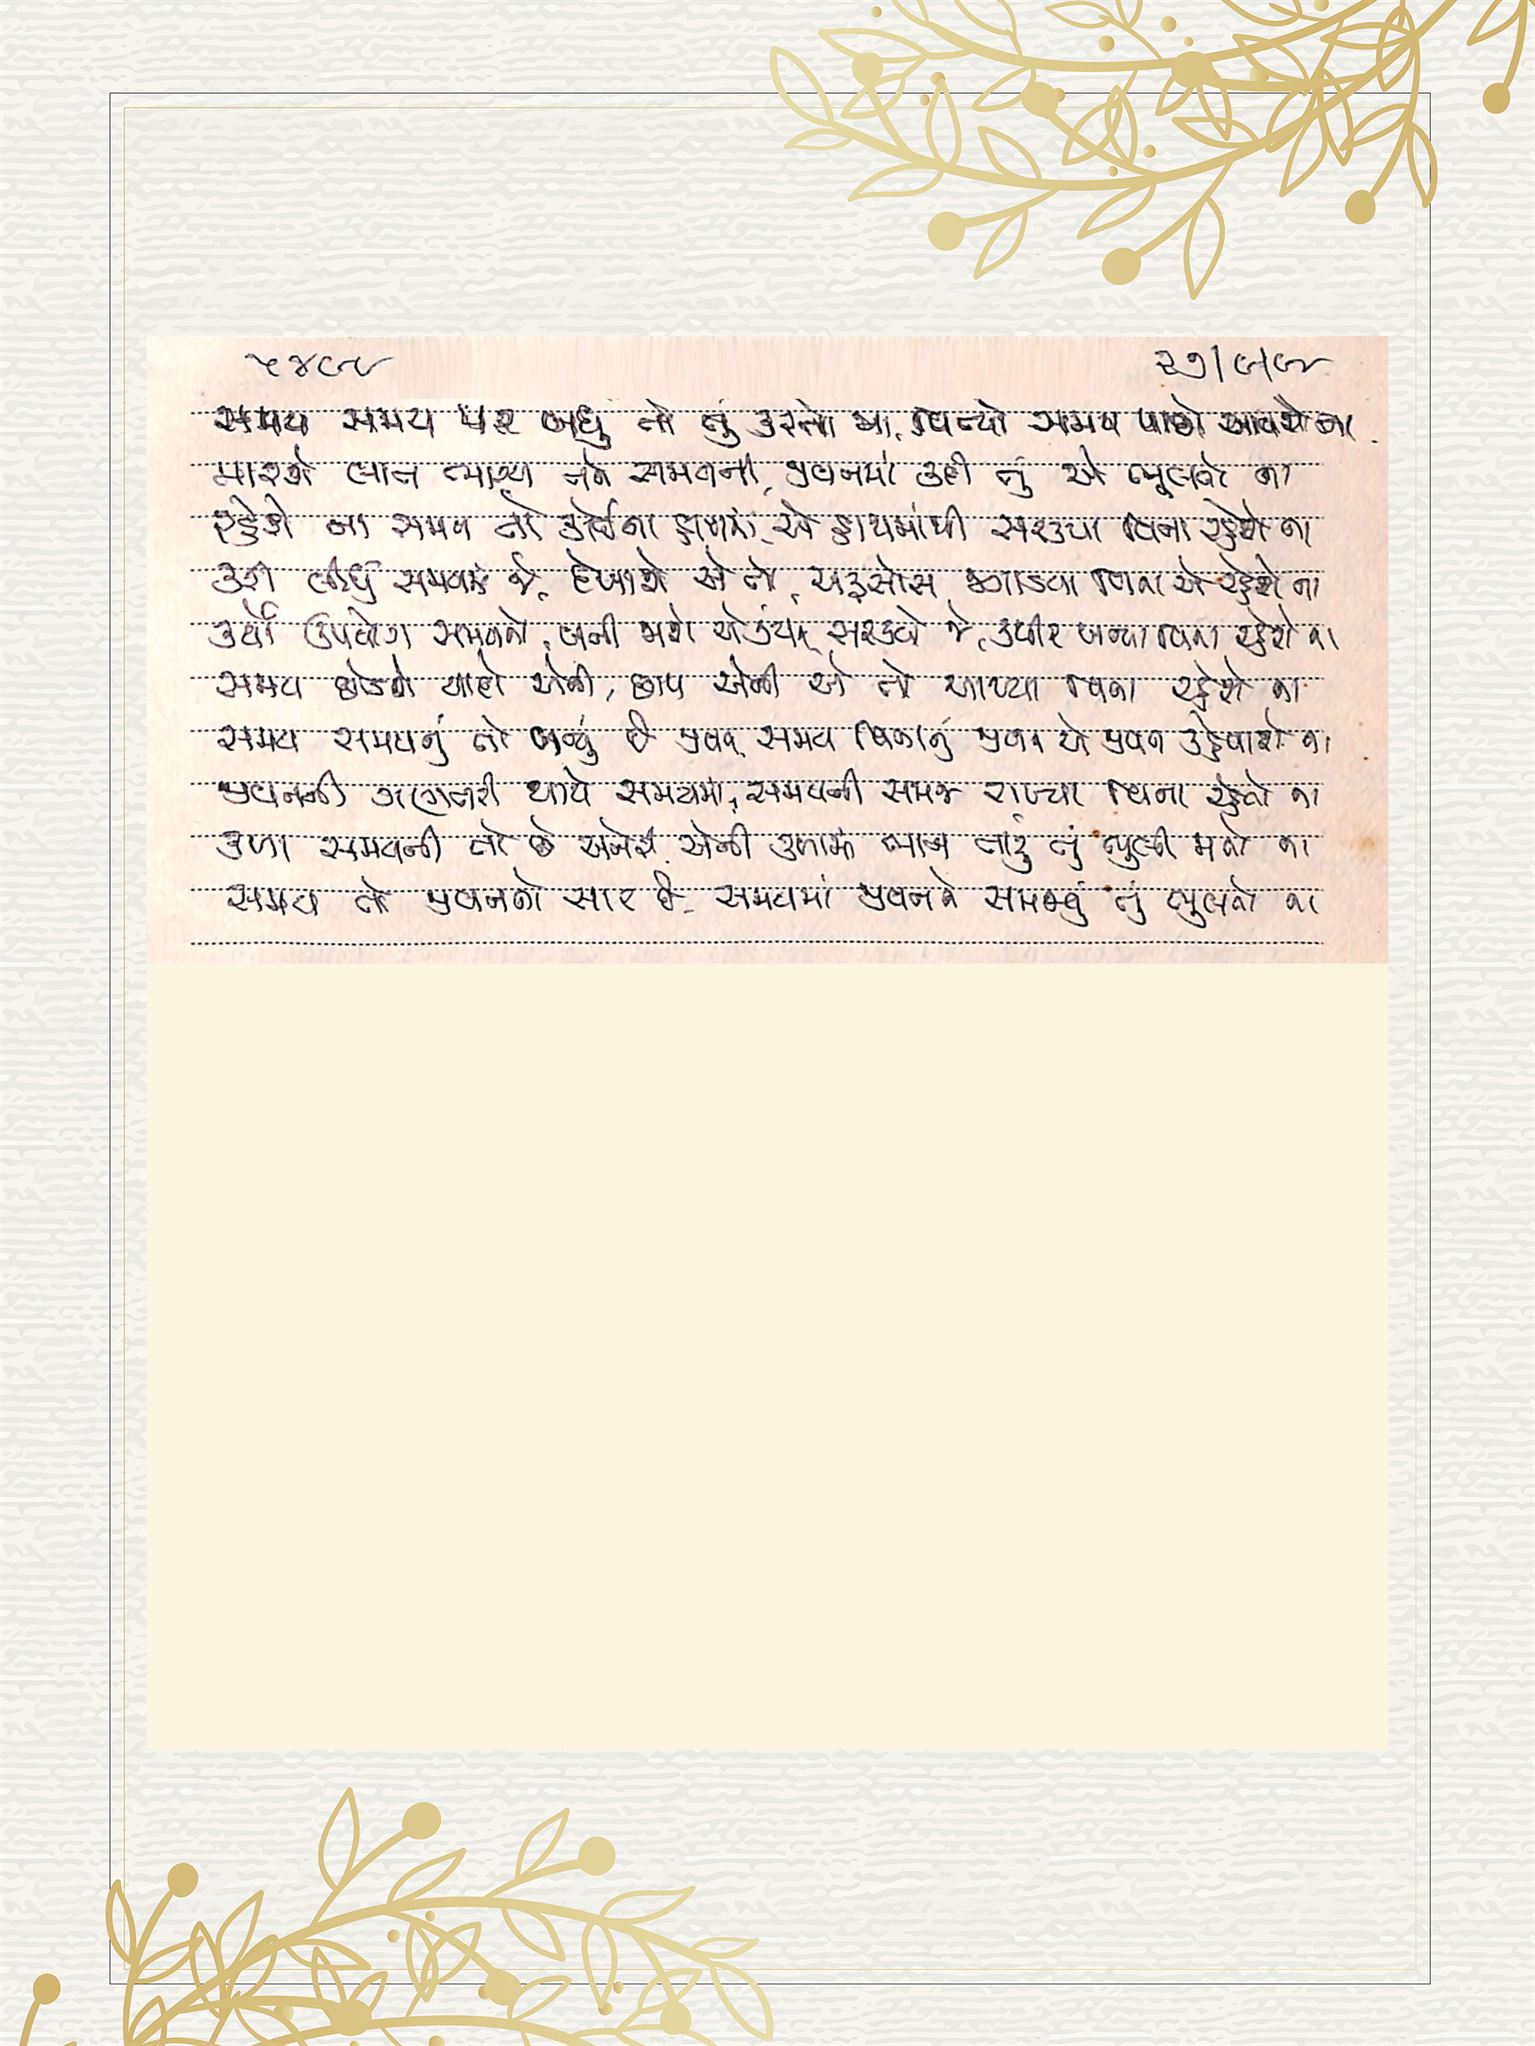 ૫૪૯૮ ૨૭|૯|૯૪
સમય સમય પર બધું તો તું કરતો જા, વિત્યો સમય પાછો આવશે ના
મારશે લાત ભાગ્ય તને સમયની, જીવનમાં કદી તું એ ભૂલતો ના
રહેશે ના સમય તો કોઈના હાથમાં, એ હાથમાંથી સરક્યા વિના રહેશે ના
કરી લીધું સમયસર જે, દેખાશે એ તો, અફસોસ જગાડયા વિના એ રહેશે ના
કર્યો ઉપયોગ સમયનો, બની જાશે એકંદર સરકયો જે, કબીર બન્યા વિના રહેશે ના
સમય છોડશે યાદો એની, છાપ એની એ તો આપ્યા વિના રહેશે ના
સમય સમયનું તો બન્યું છે જીવન, સમય વિનાનું જીવન એ જીવન કહેવાશે ના
જીવનની ગણતરી થાયે સમયમાં, સમયની સમજ રાખ્યા વિના રહેતો ના
કળા સમયની તો છે અનોખી, એની કળામાં ભાન તારું તું ભૂલી જાતો ના
સમય તો જીવનનો સાર છે, સમયમાં જીવનને સમજવું તું ભૂલતો ના